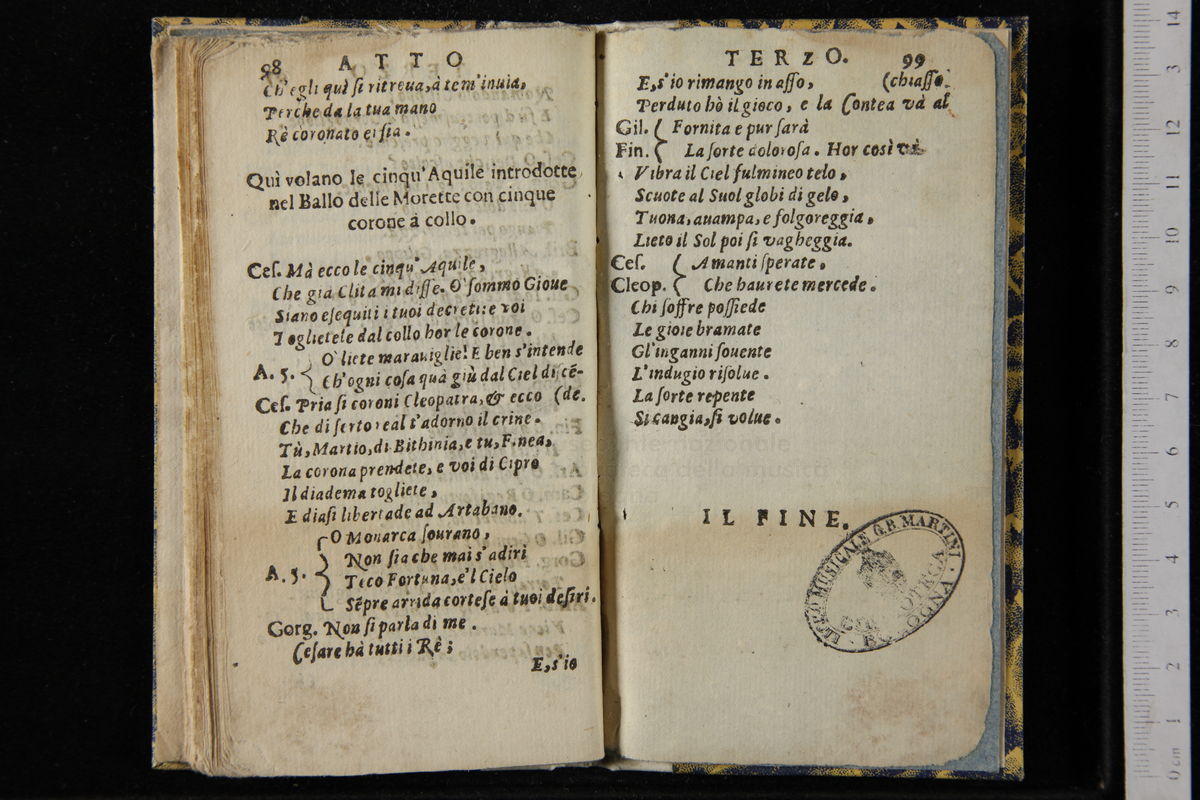 98 ATTO
Ch'egli quì si ritroua, à tem'inuia,
Perche da la tua mano
Rè coronato ei sia.
Quì volano le cinqu'Aquile introdotte
nel Ballo delle Morette con cinque
corone à collo.
Ces. Mà ecco le cinqu'Aquile,
Che già Clita mi disse. O' sommo Gioue
Siano esequiti i tuoi decreti: e voi
Toglietele dal collo hor le corone.
A. 5. { O' liete marauiglie! E ben s'intende
Ch'ogni cosa quà giù dal Ciel discē-
Ces. Pria si coroni Cleopatra, & ecco (de.
Che di serto real t'adorno il crine.
Tù, Martio, di Bithinia, e tu, Finea,
La corona prendete, e voi di Cipro
Il diadema togliete,
E diasi libertade ad Artabano.
A. 5. { O Monarca sourano,
Non sia che mai s'adiri
Teco Fortuna, e'l Cielo
Sēpre arrida cortese à tuoi desiri.
Gorg. Non si parla di me.
Cesare hà tutti i Rè;
E, s'io
TERZO. 99
E, s'io rimango in asso, (chiasso.
Perduto hò il gioco, e la Contea và al
Gil. { Fornita e pur sarà
Fin. { La sorte dolorosa. Hor così và
Vibra il Ciel fulmineo telo,
Scuote al Suol globi di gelo,
Tuona, auampa, e folgoreggia,
Lieto il Sol poi si vagheggia.
Ces. { Amanti sperate,
Cleop. { Che haurete mercede.
Chi soffre possiede
Le gioie bramate
Gl'inganni souente
L'indugio risolue.
La sorte repente
Si cangia, si volue.
IL FINE.
LICEO MUSICALE G.B. MARTINI
BIBLIOTECA
BOLOGNA